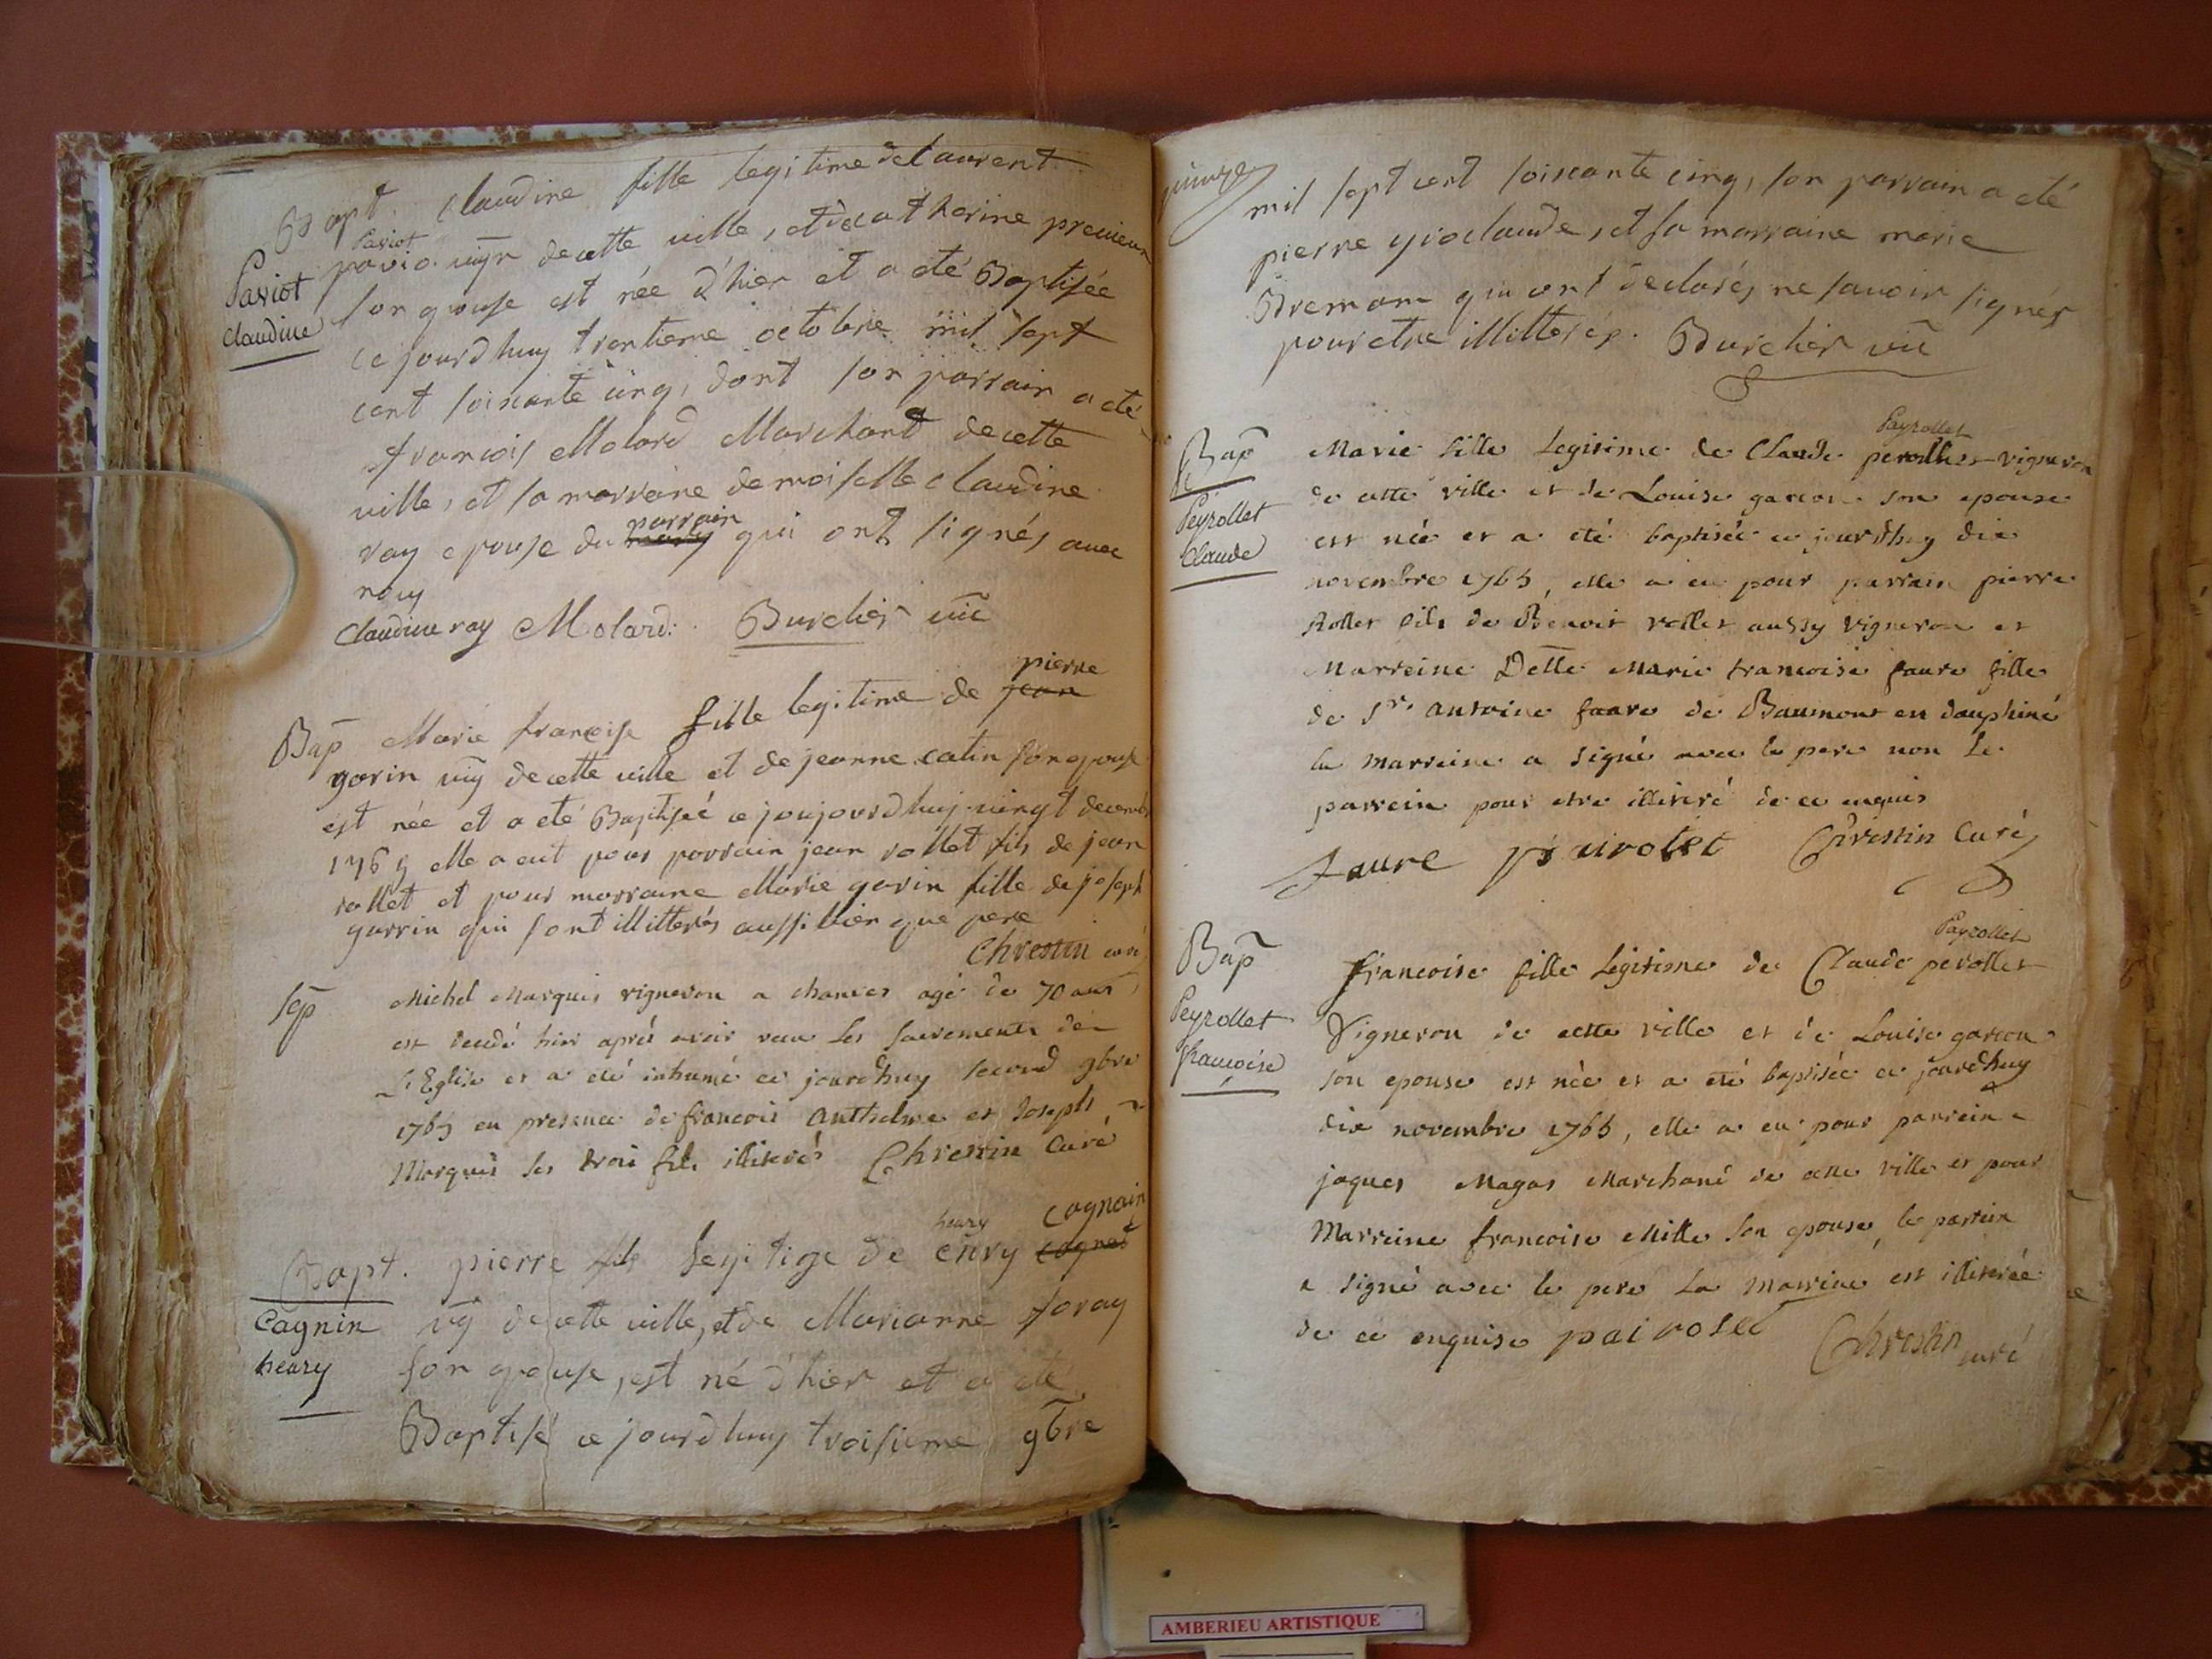 Bapt. Claudine fille legitime de Laurent
Paviot
pavio. vign decette ville, et de catherine
Paviot
Claudine
son epouse est née d'hier et a eté Baptisée
ce jourdhuy trentieme octobre mil sept
cent soixante cinq, dont son parrain a eté
francois Molard Marchant decette
ville, et sa marraine demoiselle claudine
parrain
ray epouse du qui ont signés avec
nous
Claudine ray Molard: Burelier vic
pierre
Bap Marie francoise fille legitime de jean
garin vig decette ville et de jeanne catin son epouse
est née et a eté Baptisée ce joujourdhuj vingt decemb
1765 elle a eut pour parrain jean rollet fils de jean
rollet et pour marraine Marie garin fille de joseph
garrin qui sont illitterés aussi bien que pere
Chrestin curé
Sep Michel Marquis vigneron a chances agé de 70 ans
est decedé hier aprés avoir recu les sacrements de
L'Eglise et a eté inhumé ce jourdhuy second 9bre
1765 en presence de francois anthelme et Joseph
Marquis ses trois fils illiterés Chrestin Curé
henry cagnain
Bapt. pierre fils legitime de enry cagnat
Cagnin
henry
vig decette ville, et de Marianne foray
son epouse, est né d'hier et a eté
Baptisé ce jourdhuy troisieme 9bre
mil sept cent soixante cinq, son parrain a eté
pierre groclaude, et sa marraine marie
Breman qui ont declarés ne savoir signés
pour etre illitterés. Burelier vic
Bap
de
Peyrollet
Claude
Peyrollet
Marie fille Legitime de Claude perollet vigneron
de cette ville et de Louise garcon son epouse
est née et a eté baptisée ce jourdhuy dix
novembre 1765, elle a eu pour parrain pierre
Rollet fils de Benoit rollet aussy vigneron et
Marreine Delle Marie francoise faure fille
de Sr. antoine faure de Baumont en dauphiné
la marreine a signé avec le pere non le
parrein pour etre illiteré de ce enquis
faure pairolet Chrestin Curé
Bap
Peyrollet
francoise
Peyrollet
francoise fille Legitime de Claude perollet
Vigneron de cette ville et de Louise garcon
son epouse est née et a eté baptisée ce jourdhuy
dix novembre 1765, elle a eu pour parrein
jaques Magas Marchand de cette ville et pour
Marreine francoise Mille son epouse, le parrein
a signé avec le pere La Marreine est illiterée
de ce enquise pairolet Chrestin curé
AMBERIEU ARTISTIQUE